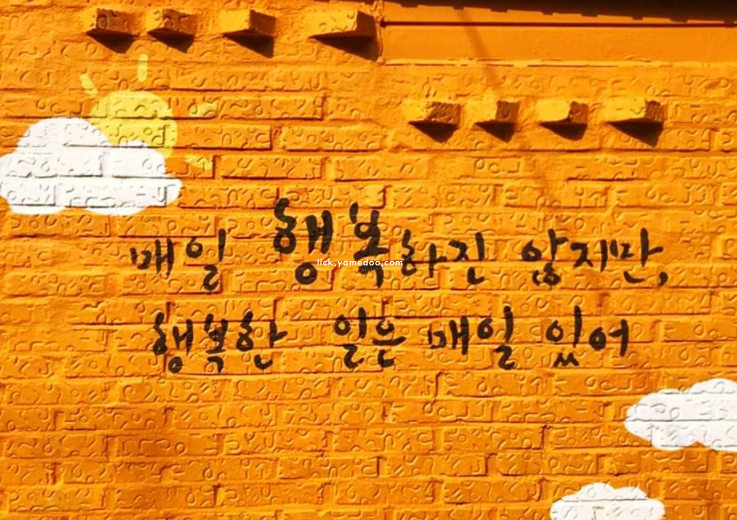 매일 행복하진 않지만,
lick.yamedoo.com
행복한 일은 매일 있어